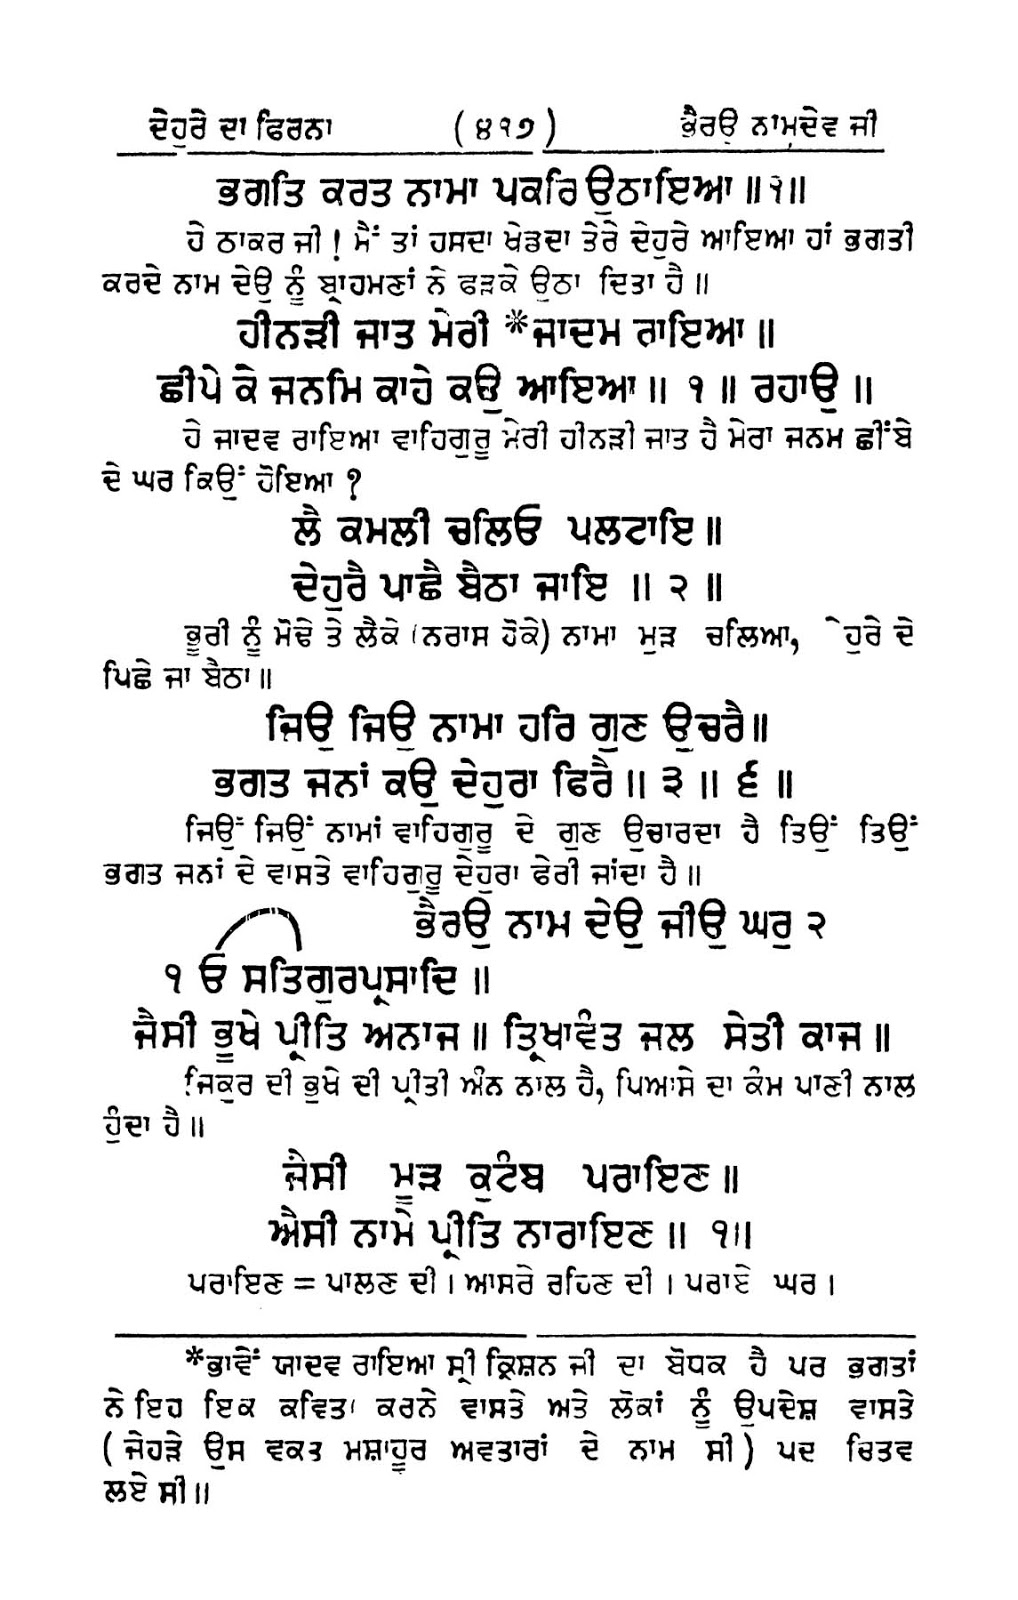 ਦੇਹੁਰੇ ਦਾ ਫਿਰਨਾ (੪੧੭) ਭੈਰਉ ਨਾਮਦੇਵ ਜੀ
ਭਗਤਿ ਕਰਤ ਨਾਮਾ ਪਕਰਿ ਉਠਾਇਆ ॥੧॥
ਹੇ ਠਾਕਰ ਜੀ ! ਮੈਂ ਤਾਂ ਹਸਦਾ ਖੇਡਦਾ ਤੇਰੇ ਦੇਹੁਰੇ ਆਇਆ ਹਾਂ ਭਗਤੀ
ਕਰਦੇ ਨਾਮ ਦੇਉ ਨੂੰ ਬ੍ਰਾਹਮਣਾਂ ਨੇ ਫੜਕੇ ਉਠਾ ਦਿਤਾ ਹੈ ॥
ਹੀਨੜੀ ਜਾਤ ਮੇਰੀ *ਜਾਦਮ ਰਾਇਆ ॥
ਛੀਪੇ ਕੇ ਜਨਮਿ ਕਾਹੇ ਕਉ ਆਇਆ ॥ ੧ ॥ ਰਹਾਉ ॥
ਹੇ ਜਾਦਵ ਰਾਇਆ ਵਾਹਿਗੁਰੂ ਮੇਰੀ ਹੀਨੜੀ ਜਾਤ ਹੈ ਮੇਰਾ ਜਨਮ ਛੀਂਬੇ
ਦੇ ਘਰ ਕਿਉਂ ਹੋਇਆ ?
ਲੈ ਕਮਲੀ ਚਲਿਓ ਪਲਟਾਇ ॥
ਦੇਹੁਰੈ ਪਾਛੈ ਬੈਠਾ ਜਾਇ ॥ ੨ ॥
ਭੂਰੀ ਨੂੰ ਮੋਢੇ ਤੇ ਲੈਕੇ (ਨਰਾਸ ਹੋਕੇ) ਨਾਮਾ ਮੁੜ ਚਲਿਆ, ੇਹੁਰੇ ਦੇ
ਪਿਛੇ ਜਾ ਬੈਠਾ ॥
ਜਿਉ ਜਿਉ ਨਾਮਾ ਹਰਿ ਗੁਣ ਉਚਰੈ ॥
ਭਗਤ ਜਨਾਂ ਕਉ ਦੇਹੁਰਾ ਫਿਰੈ ॥ ੩ ॥ ੬ ॥
ਜਿਉਂ ਜਿਉਂ ਨਾਮਾਂ ਵਾਹਿਗੁਰੂ ਦੇ ਗੁਣ ਉਚਾਰਦਾ ਹੈ ਤਿਉਂ ਤਿਉਂ
ਭਗਤ ਜਨਾਂ ਦੇ ਵਾਸਤੇ ਵਾਹਿਗੁਰੂ ਦੇਹੁਰਾ ਫੇਰੀ ਜਾਂਦਾ ਹੈ ॥
ਭੈਰਉ ਨਾਮ ਦੇਉ ਜੀਉ ਘਰੁ ੨
੧ ਓ ਸਤਿਗੁਰਪ੍ਰਸਾਦਿ ॥
ਜੈਸੀ ਭੂਖੇ ਪ੍ਰੀਤਿ ਅਨਾਜ ॥ ਤ੍ਰਿਖਾਵੰਤ ਜਲ ਸੇਤੀ ਕਾਜ ॥
ਜਿਕੁਰ ਦੀ ਭੁਖੇ ਦੀ ਪ੍ਰੀਤੀ ਅੰਨ ਨਾਲ ਹੈ, ਪਿਆਸੇ ਦਾ ਕੰਮ ਪਾਣੀ ਨਾਲ
ਹੁੰਦਾ ਹੈ ॥
ਜੈਸੀ ਮੂੜ ਕੁਟੰਬ ਪਰਾਇਣ ॥
ਐਸੀ ਨਾਮੇ ਪ੍ਰੀਤਿ ਨਾਰਾਇਣ ॥ ੧॥
ਪਰਾਇਣ = ਪਾਲਣ ਦੀ । ਆਸਰੇ ਰਹਿਣ ਦੀ । ਪਰਾਏ ਘਰ ।
*ਭਾਵੇਂ ਯਾਦਵ ਰਾਇਆ ਸ੍ਰੀ ਕ੍ਰਿਸ਼ਨ ਜੀ ਦਾ ਬੋਧਕ ਹੈ ਪਰ ਭਗਤਾਂ
ਨੇ ਇਹ ਇਕ ਕਵਿਤਾ ਕਰਨੇ ਵਾਸਤੇ ਅਤੇ ਲੋਕਾਂ ਨੂੰ ਉਪਦੇਸ਼ ਵਾਸਤੇ
(ਜੇਹੜੇ ਉਸ ਵਕਤ ਮਸ਼ਾਹੂਰ ਅਵਤਾਰਾਂ ਦੇ ਨਾਮ ਸੀ) ਪਦ ਚਿਤਵ
ਲਏ ਸੀ ॥